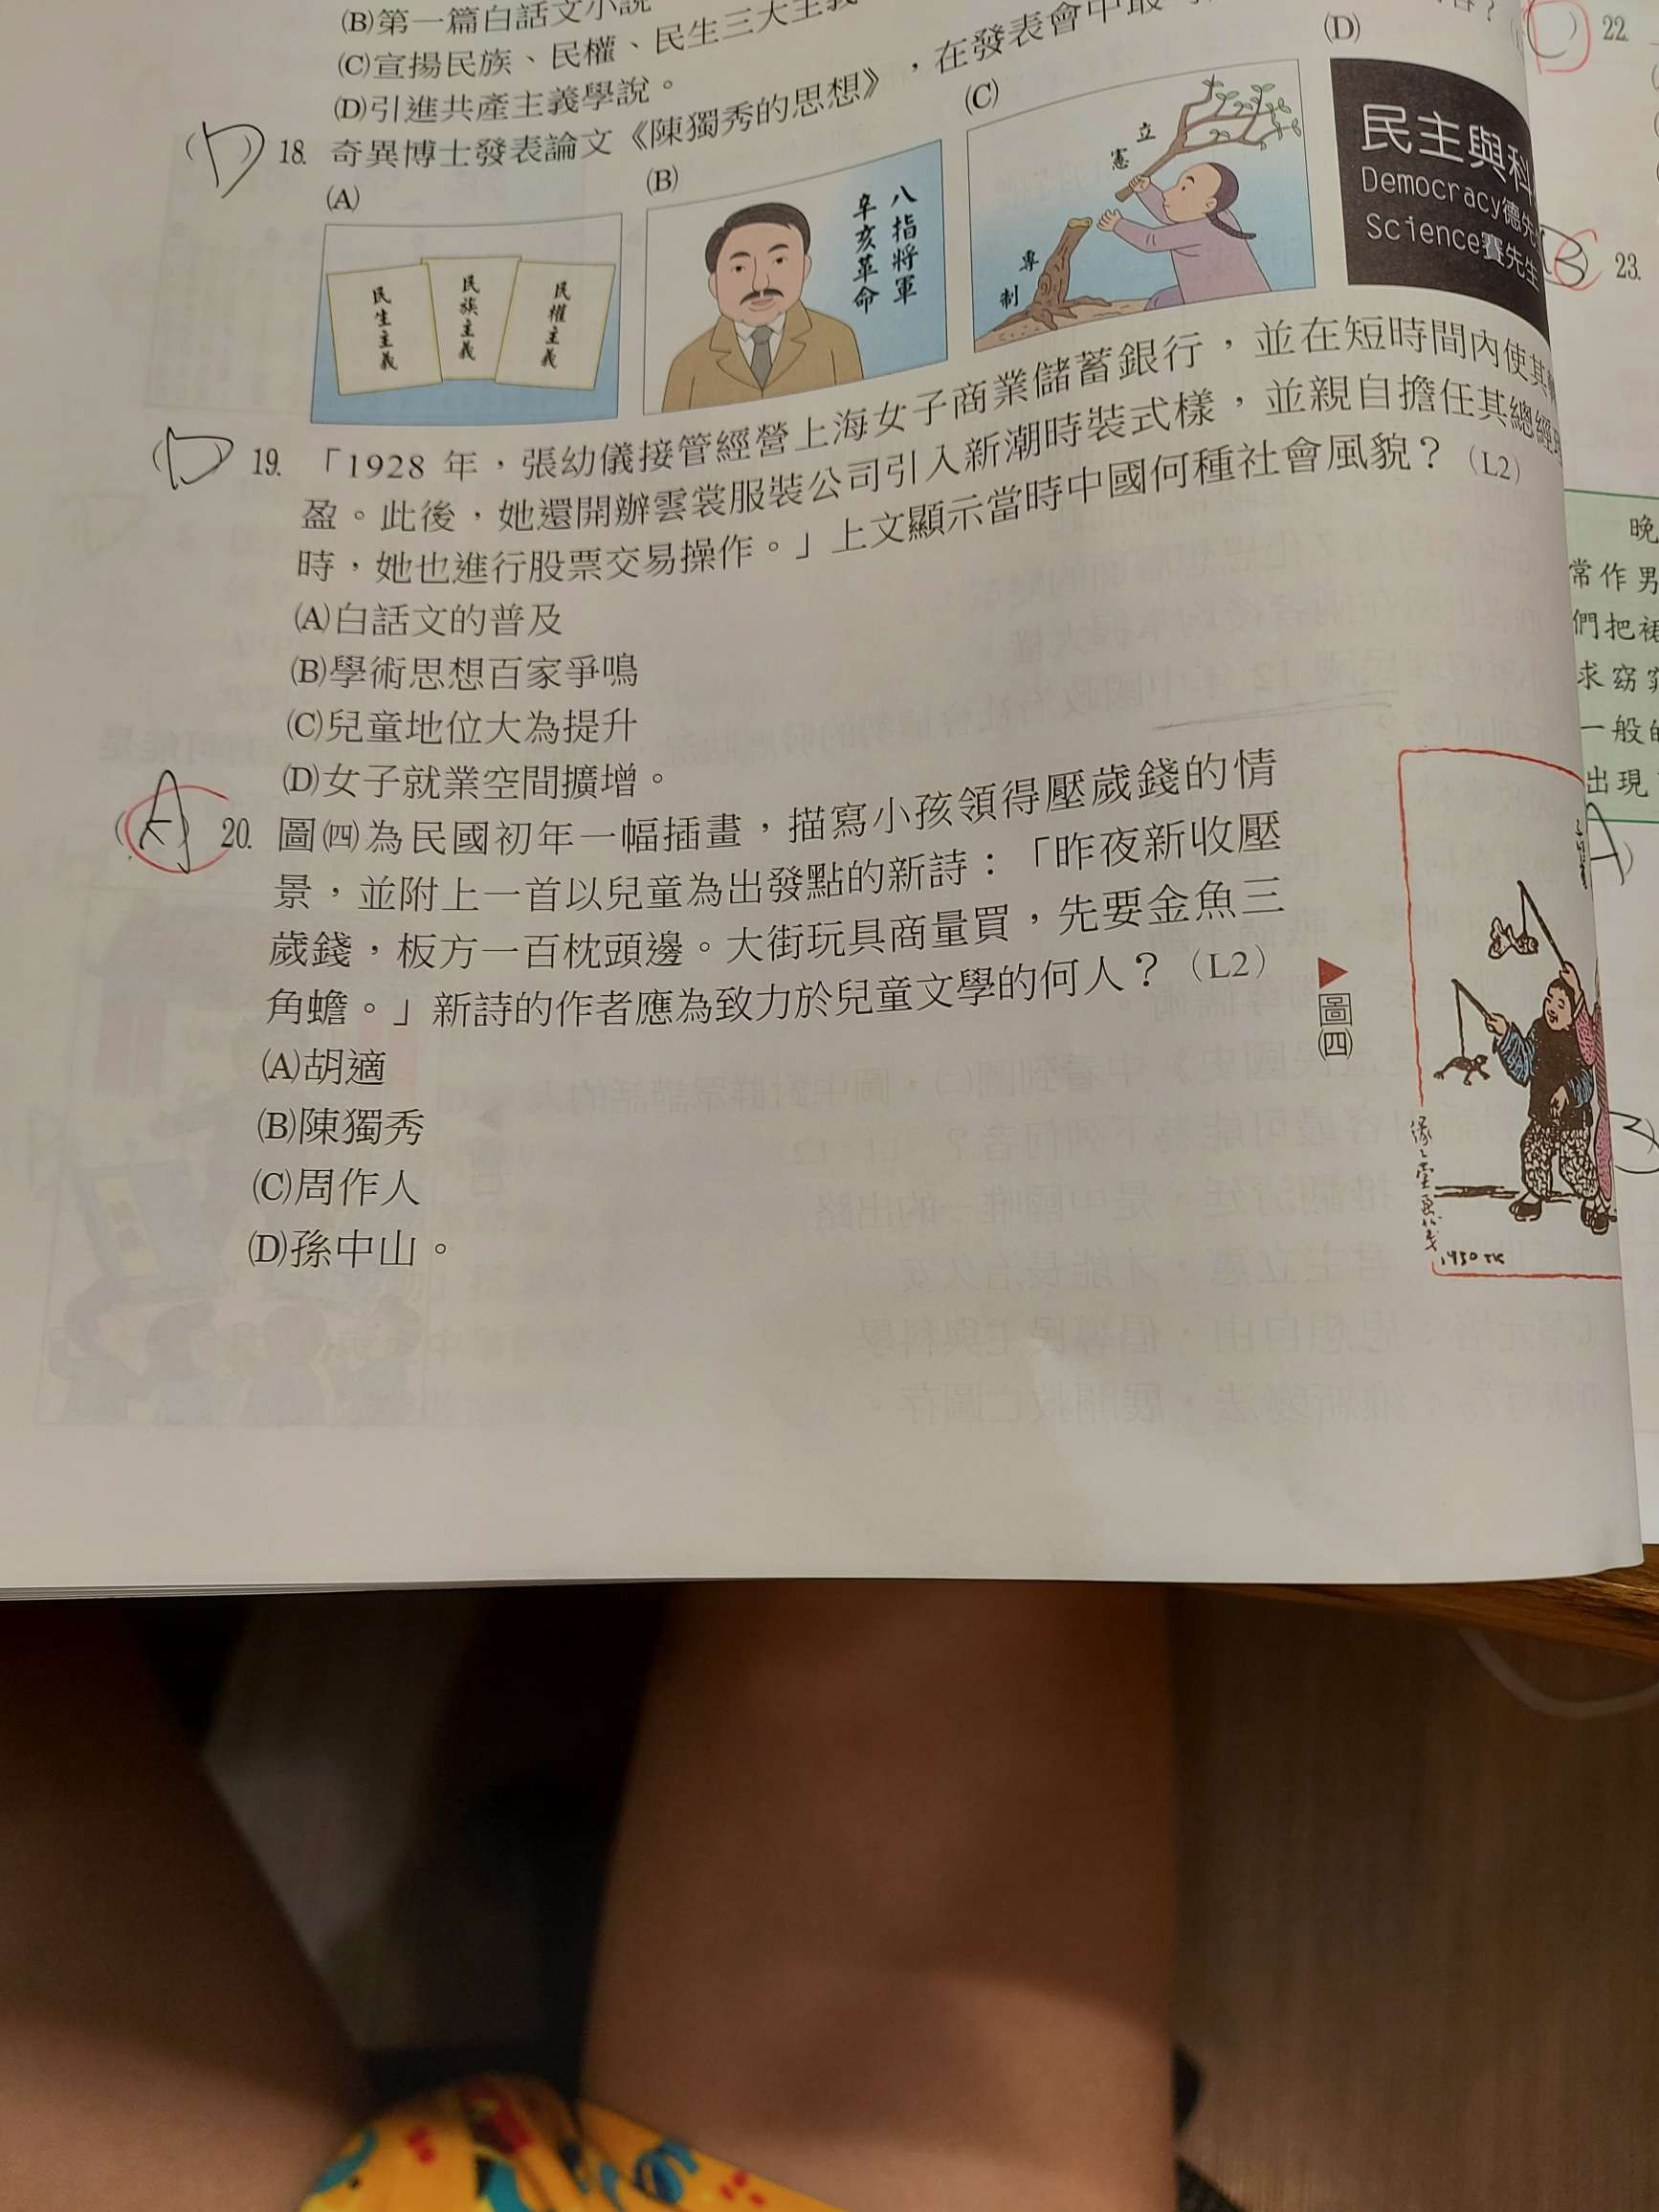 (B)第一篇白話文小說
(C)宣揚民族、民權、民生三大主義
(D)引進共產主義學說。
(D) 18. 奇異博士發表論文《陳獨秀的思想》，在發表會中最
(A)
民生主義
民族主義
民權主義
(B)
八指將軍
辛亥革命
(C)
立憲
專制
(D)
民主與科
Democracy德先
Science賽先生
(D) 19. 「1928 年，張幼儀接管經營上海女子商業儲蓄銀行，並在短時間內使其轉
盈。此後，她還開辦雲裳服裝公司引入新潮時裝式樣，並親自擔任其總經理
時，她也進行股票交易操作。」上文顯示當時中國何種社會風貌？（L2）
(A)白話文的普及
(B)學術思想百家爭鳴
(C)兒童地位大為提升
(D)女子就業空間擴增。
(A) 20. 圖㈣為民國初年一幅插畫，描寫小孩領得壓歲錢的情
景，並附上一首以兒童為出發點的新詩：「昨夜新收壓
歲錢，板方一百枕頭邊。大街玩具商量買，先要金魚三
角蟾。」新詩的作者應為致力於兒童文學的何人？（L2）
(A)胡適
(B)陳獨秀
(C)周作人
(D)孫中山。
▶圖㈣
緣緣堂
1950 TK
22.
(B) 23.
晚
常作男
們把裙
求窈窕
一般的
出現
A)